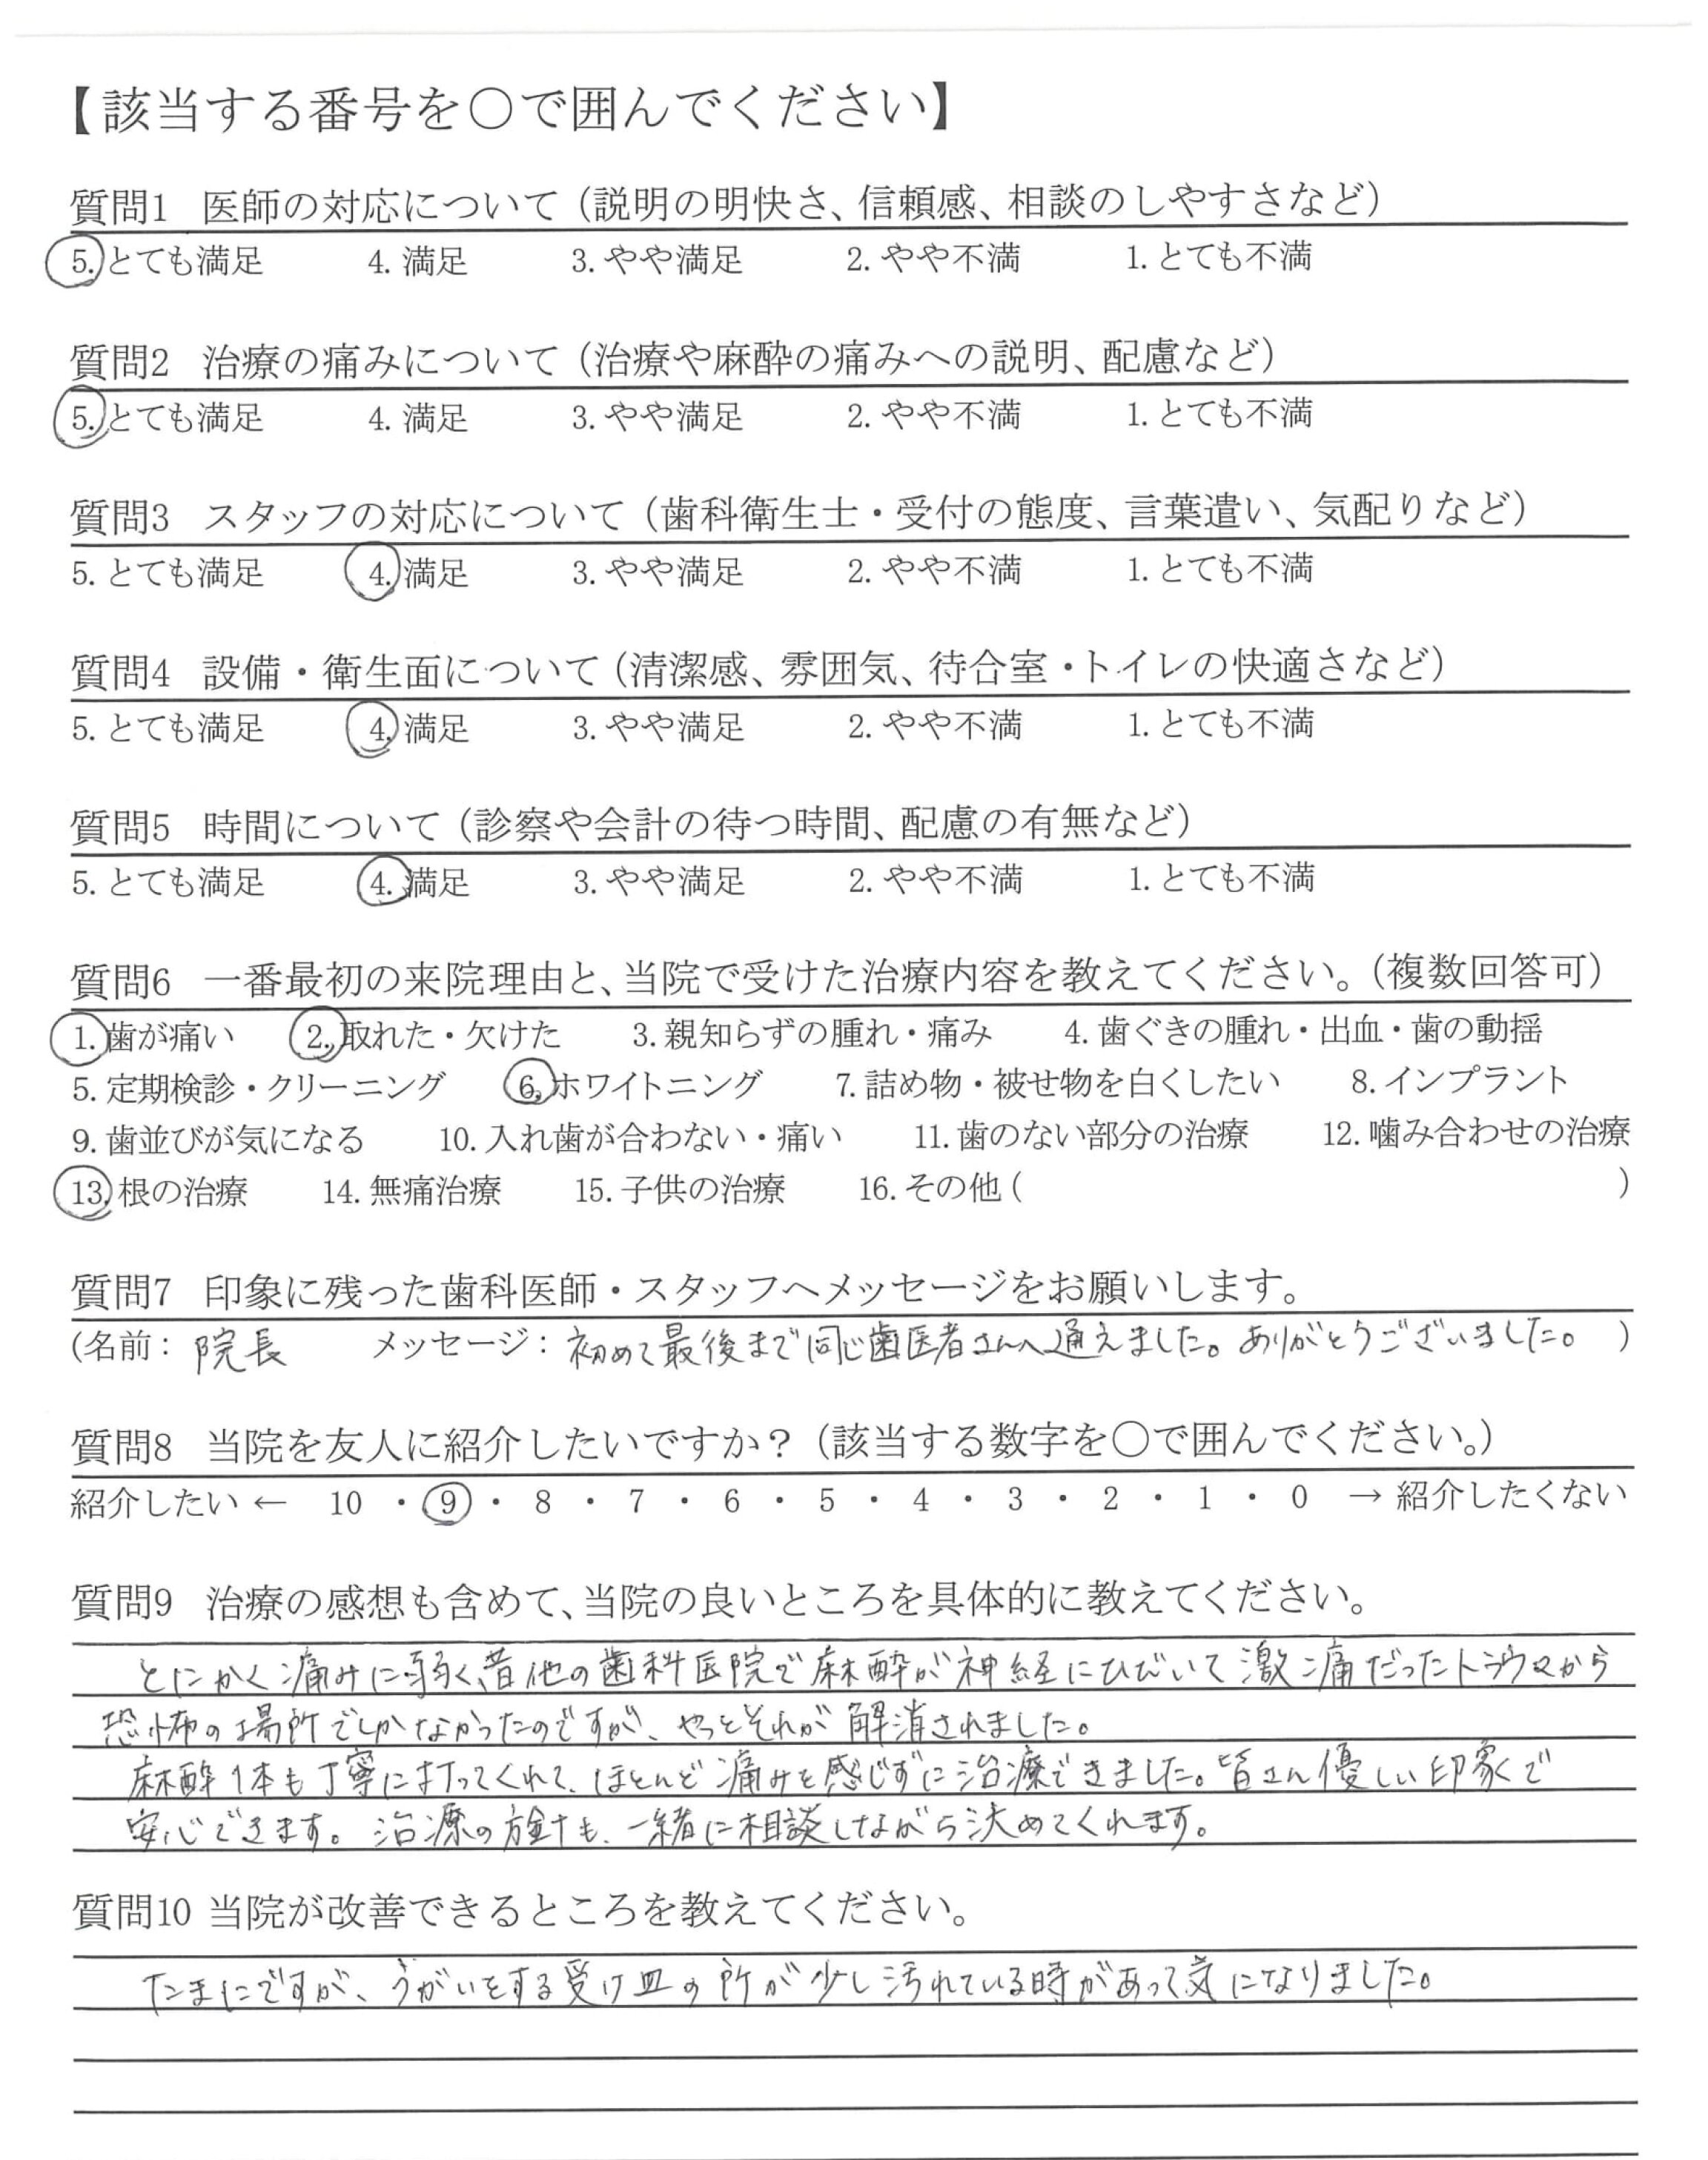 【該当する番号を〇で囲んでください】
質問1 医師の対応について（説明の明快さ、信頼感、相談のしやすさなど）
5. とても満足 4. 満足 3. やや満足 2. やや不満 1. とても不満
質問2 治療の痛みについて（治療や麻酔の痛みへの説明、配慮など）
5. とても満足 4. 満足 3. やや満足 2. やや不満 1. とても不満
質問3 スタッフの対応について（歯科衛生士・受付の態度、言葉遣い、気配りなど）
5. とても満足 4. 満足 3. やや満足 2. やや不満 1. とても不満
質問4 設備・衛生面について（清潔感、雰囲気、待合室・トイレの快適さなど）
5. とても満足 4. 満足 3. やや満足 2. やや不満 1. とても不満
質問5 時間について（診察や会計の待つ時間、配慮の有無など）
5. とても満足 4. 満足 3. やや満足 2. やや不満 1. とても不満
質問6 一番最初の来院理由と、当院で受けた治療内容を教えてください。（複数回答可）
1. 歯が痛い 2. 取れた・欠けた 3. 親知らずの腫れ・痛み 4. 歯ぐきの腫れ・出血・歯の動揺
5. 定期検診・クリーニング 6. ホワイトニング 7. 詰め物・被せ物を白くしたい 8. インプラント
9. 歯並びが気になる 10. 入れ歯が合わない・痛い 11. 歯のない部分の治療 12. 噛み合わせの治療
13. 根の治療 14. 無痛治療 15. 子供の治療 16. その他（ ）
質問7 印象に残った歯科医師・スタッフへメッセージをお願いします。
（名前：院長 メッセージ：初めて最後まで同じ歯医者さんへ通えました。ありがとうございました。）
質問8 当院を友人に紹介したいですか？（該当する数字を〇で囲んでください。）
紹介したい ← 10 ・ 9 ・ 8 ・ 7 ・ 6 ・ 5 ・ 4 ・ 3 ・ 2 ・ 1 ・ 0 → 紹介したくない
質問9 治療の感想も含めて、当院の良いところを具体的に教えてください。
とにかく痛みに弱く、昔他の歯科医院で麻酔が神経にひびいて激痛だったトラウマから
恐怖の場所でしかなかったのですが、やっとそれが解消されました。
麻酔1本も丁寧に打ってくれて、ほとんど痛みを感じずに治療できました。皆さん優しい印象で
安心できます。治療の方針も、一緒に相談しながら決めてくれます。
質問10 当院が改善できるところを教えてください。
たまにですが、うがいをする受け皿の所が少し汚れている時があって気になりました。